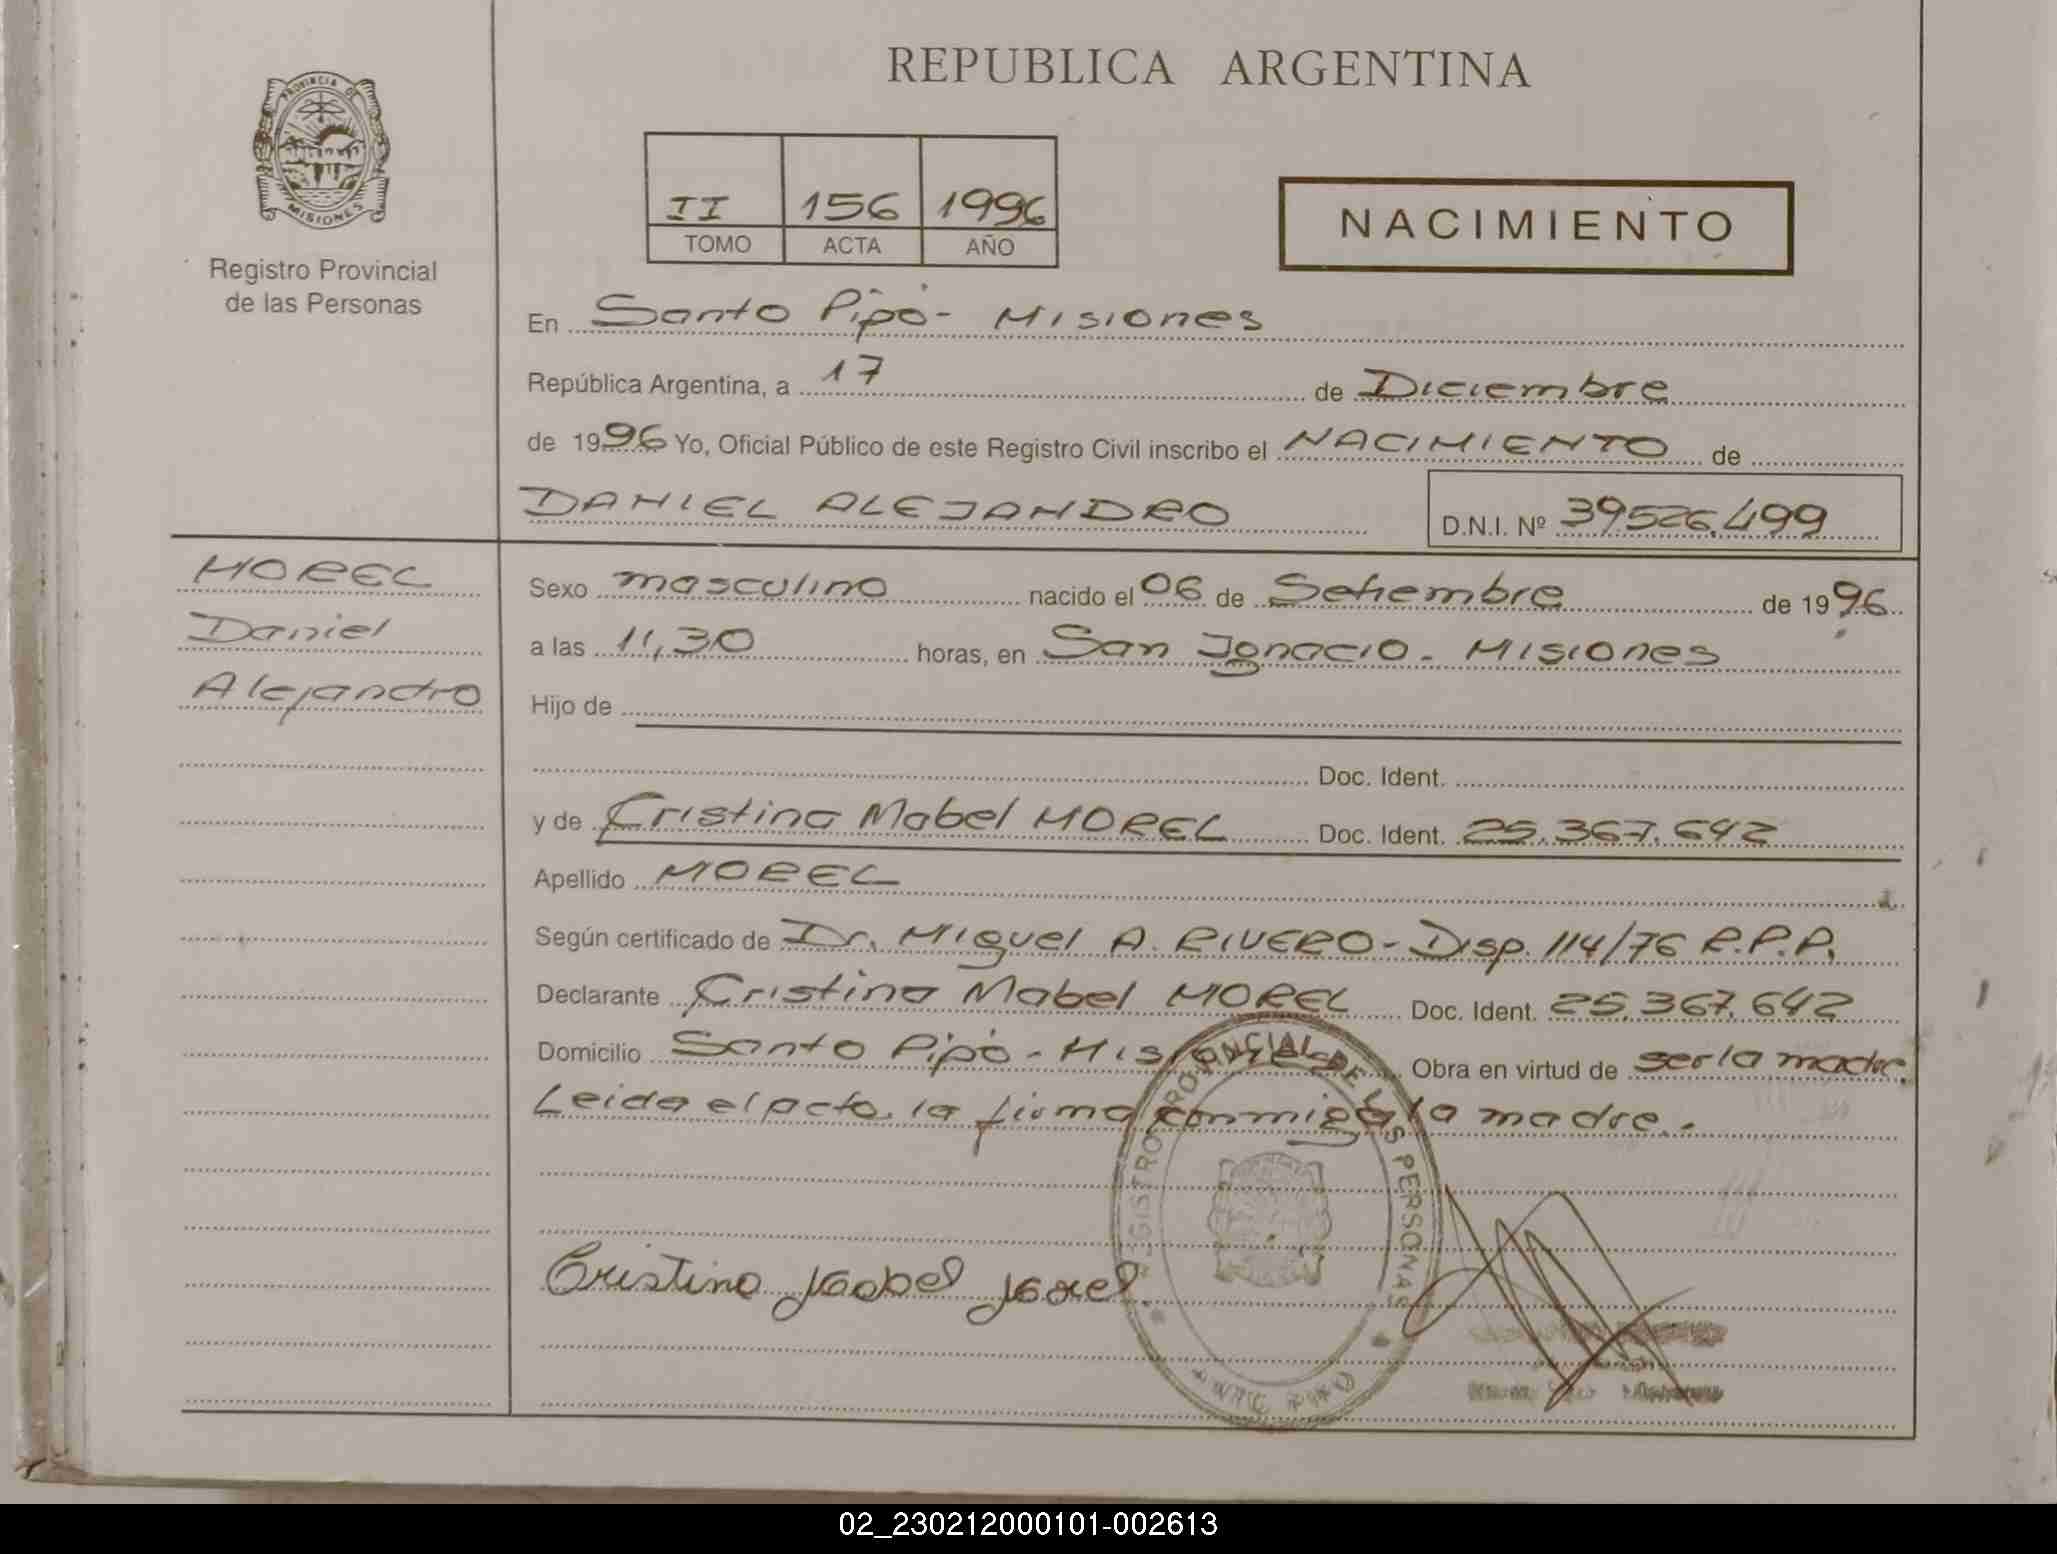 REPUBLICA ARGENTINA
PROVINCIA DE MISIONES
Registro Provincial
de las Personas
II 156 1996
TOMO ACTA AÑO
NACIMIENTO
En Santo Pipó - Misiones
República Argentina, a 17 de Diciembre
de 1996 Yo, Oficial Público de este Registro Civil inscribo el NACIMIENTO de
DANIEL ALEJANDRO D.N.I. Nº 39526.499
MOREL
Daniel
Alejandro
Sexo masculino nacido el 06 de Setiembre de 1996
a las 11,30 horas, en San Ignacio - Misiones
Hijo de
Doc. Ident.
y de Cristina Mabel MOREL Doc. Ident. 25.367.642
Apellido MOREL
Según certificado de Dr. Miguel A. RIVERO - Disp. 114/76 R.P.P.
Declarante Cristina Mabel MOREL Doc. Ident. 25.367.642
Domicilio Santo Pipó - Misiones Obra en virtud de ser la madre.
Leida el acta, la firma conmigo la madre.
REGISTRO PROVINCIAL DE LAS PERSONAS
Cristina Mabel Morel
02_230212000101-002613